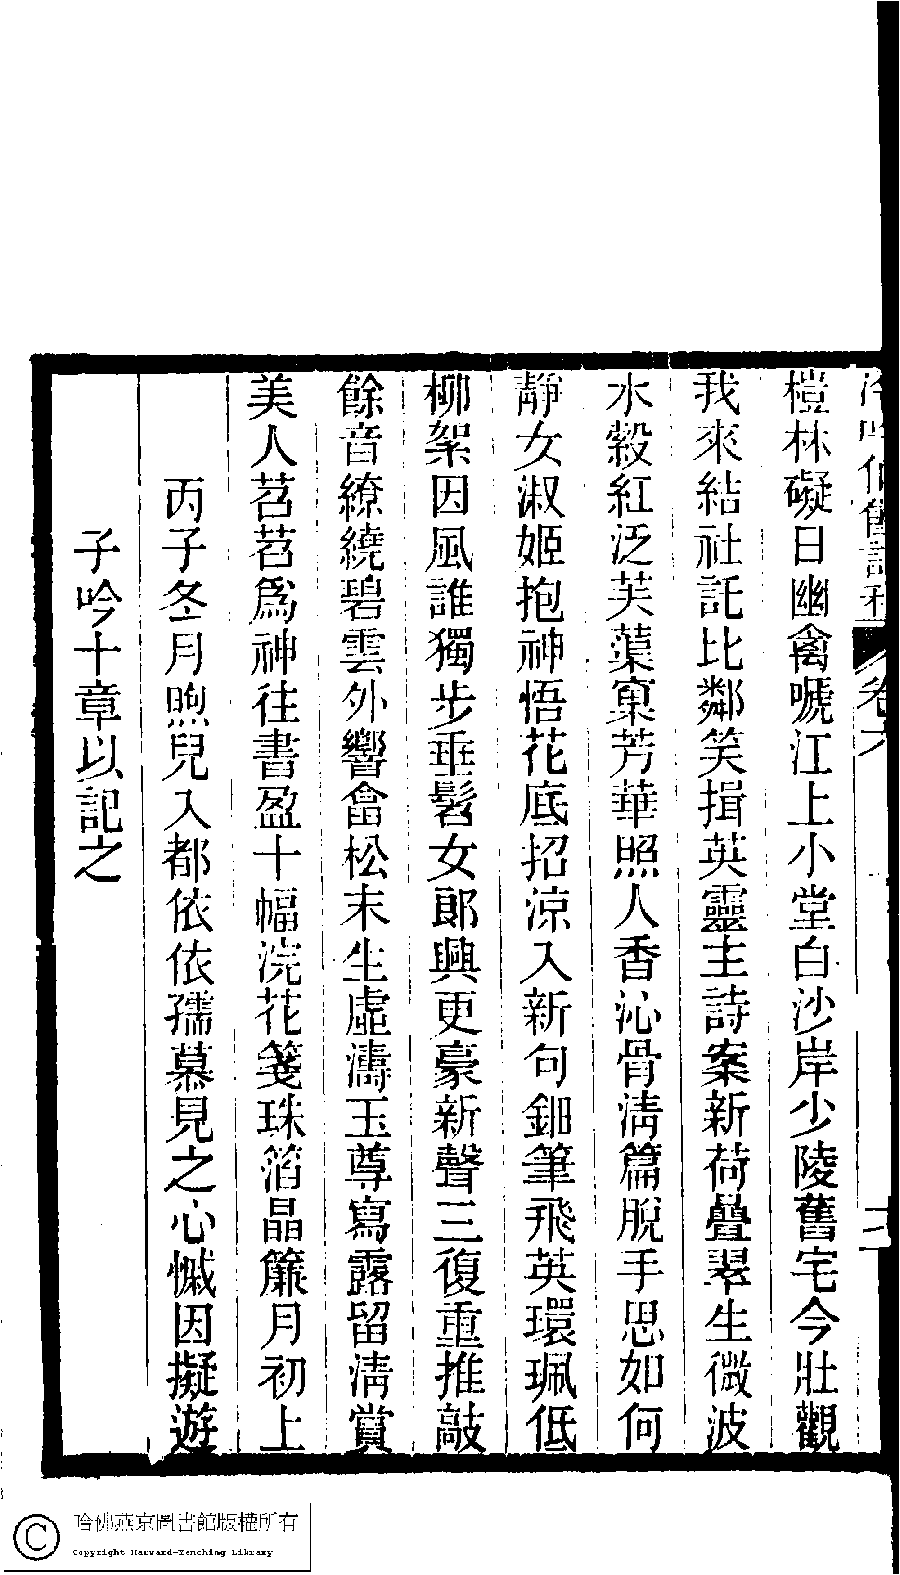 卷六
榿林礙日幽禽嗁江上小堂白沙岸少陵舊宅今壯觀
我來結社託比鄰笑揖英靈主詩案新荷疊翠生微波
水縠紅泛芙蕖窠芳華照人香沁骨淸篇脫手思如何
靜女淑姬抱神悟花底招涼入新句鈿筆飛英環珮低
柳絮因風誰獨步垂髫女郎興更豪新聲三復重推敲
餘音繚繞碧雲外響畣松末生虛濤玉尊寫露留淸賞
美人苕苕爲神往書盈十幅浣花箋珠箔晶簾月初上
丙子冬月煦兒入都依依孺慕見之心慽因擬遊
子吟十章以記之
哈佛燕京圖書館版權所有
Copyright Harvard-Yenching Library